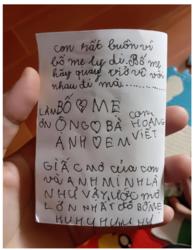 con rất buồn vì
bố mẹ ly dị. Bố mẹ
hãy quay trở về với
nhau đi mà.......
LÀM BỐ ♡ MẸ
ƠN ÔNG ♡ BÀ CON HOÀNG
ANH ♡ EM VIẾT
GIẤC MƠ CỦA CON
VÀ ANH MINH LÀ
NHƯ VẬY, ƯỚC MƠ
LỚN NHẤT ĐÓ BỐ MẸ
HU HU HU HU HU